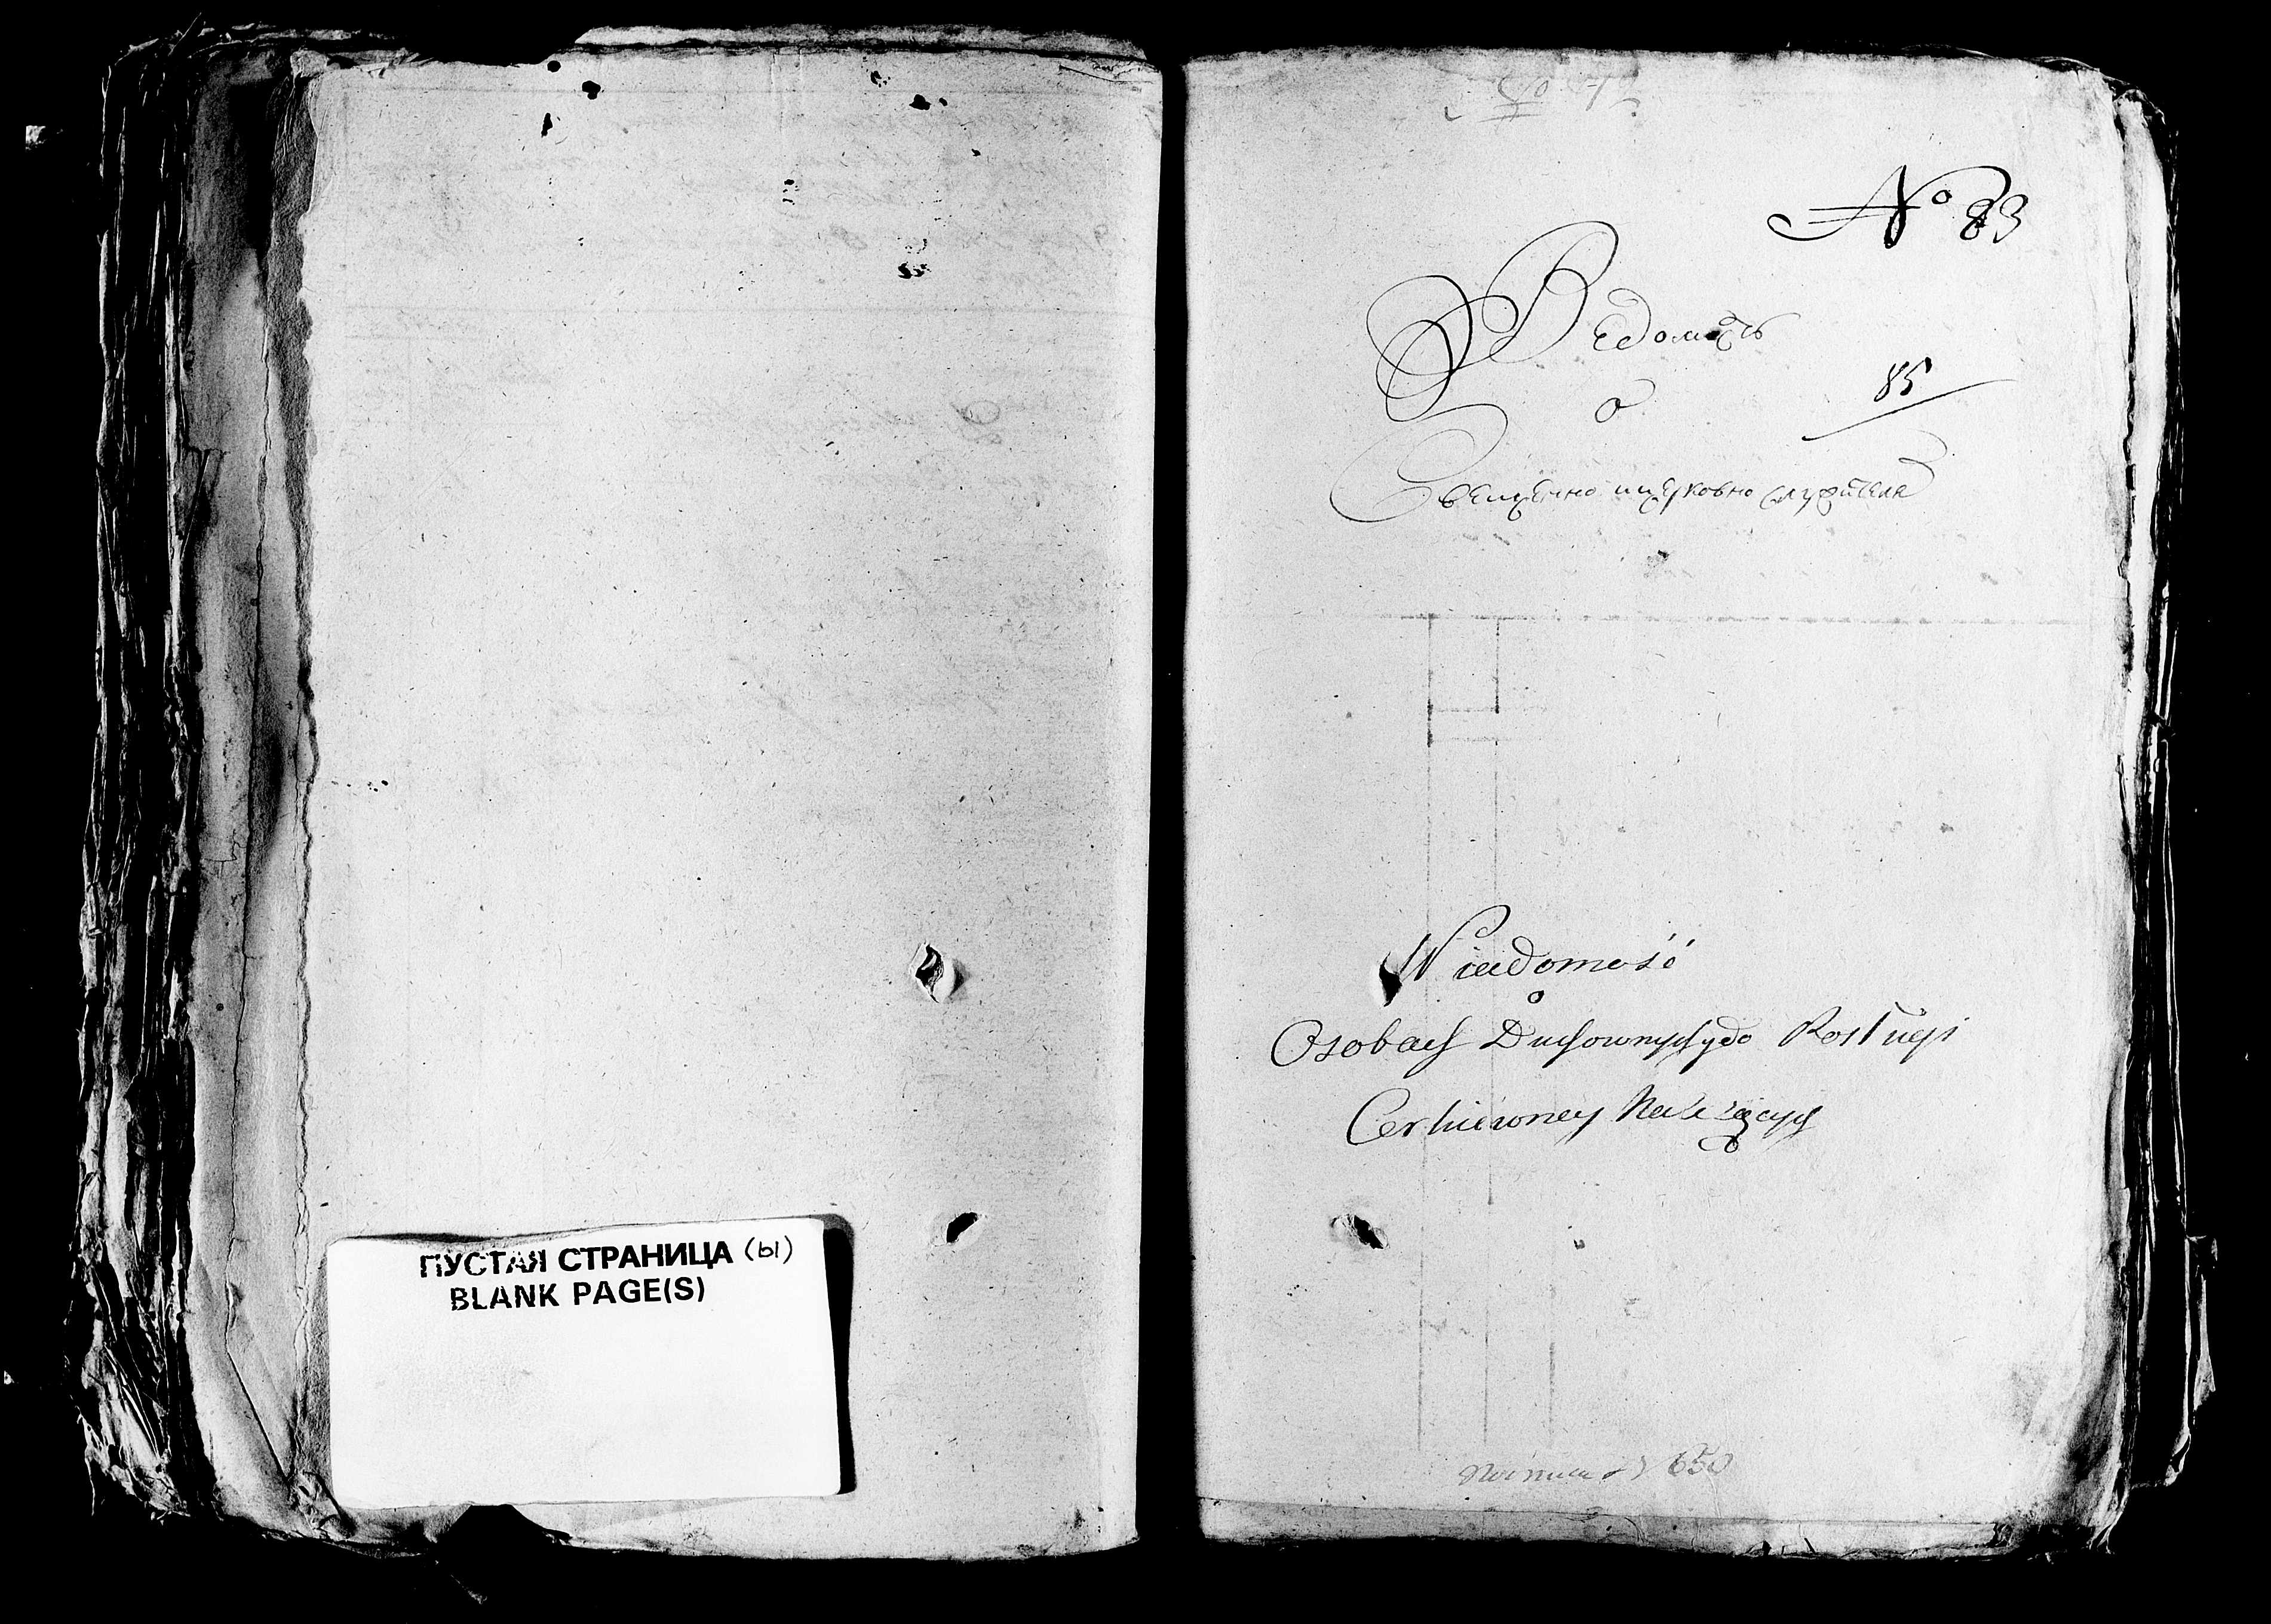 ПУСТАЯ СТРАНИЦА (ы)
BLANK PAGE(S)
№ 83
Ведомость
85
о
Свещенно и церковно служителя
Wiadomość
o
Osobach Duchownych do
Cerkiewney Należących
650